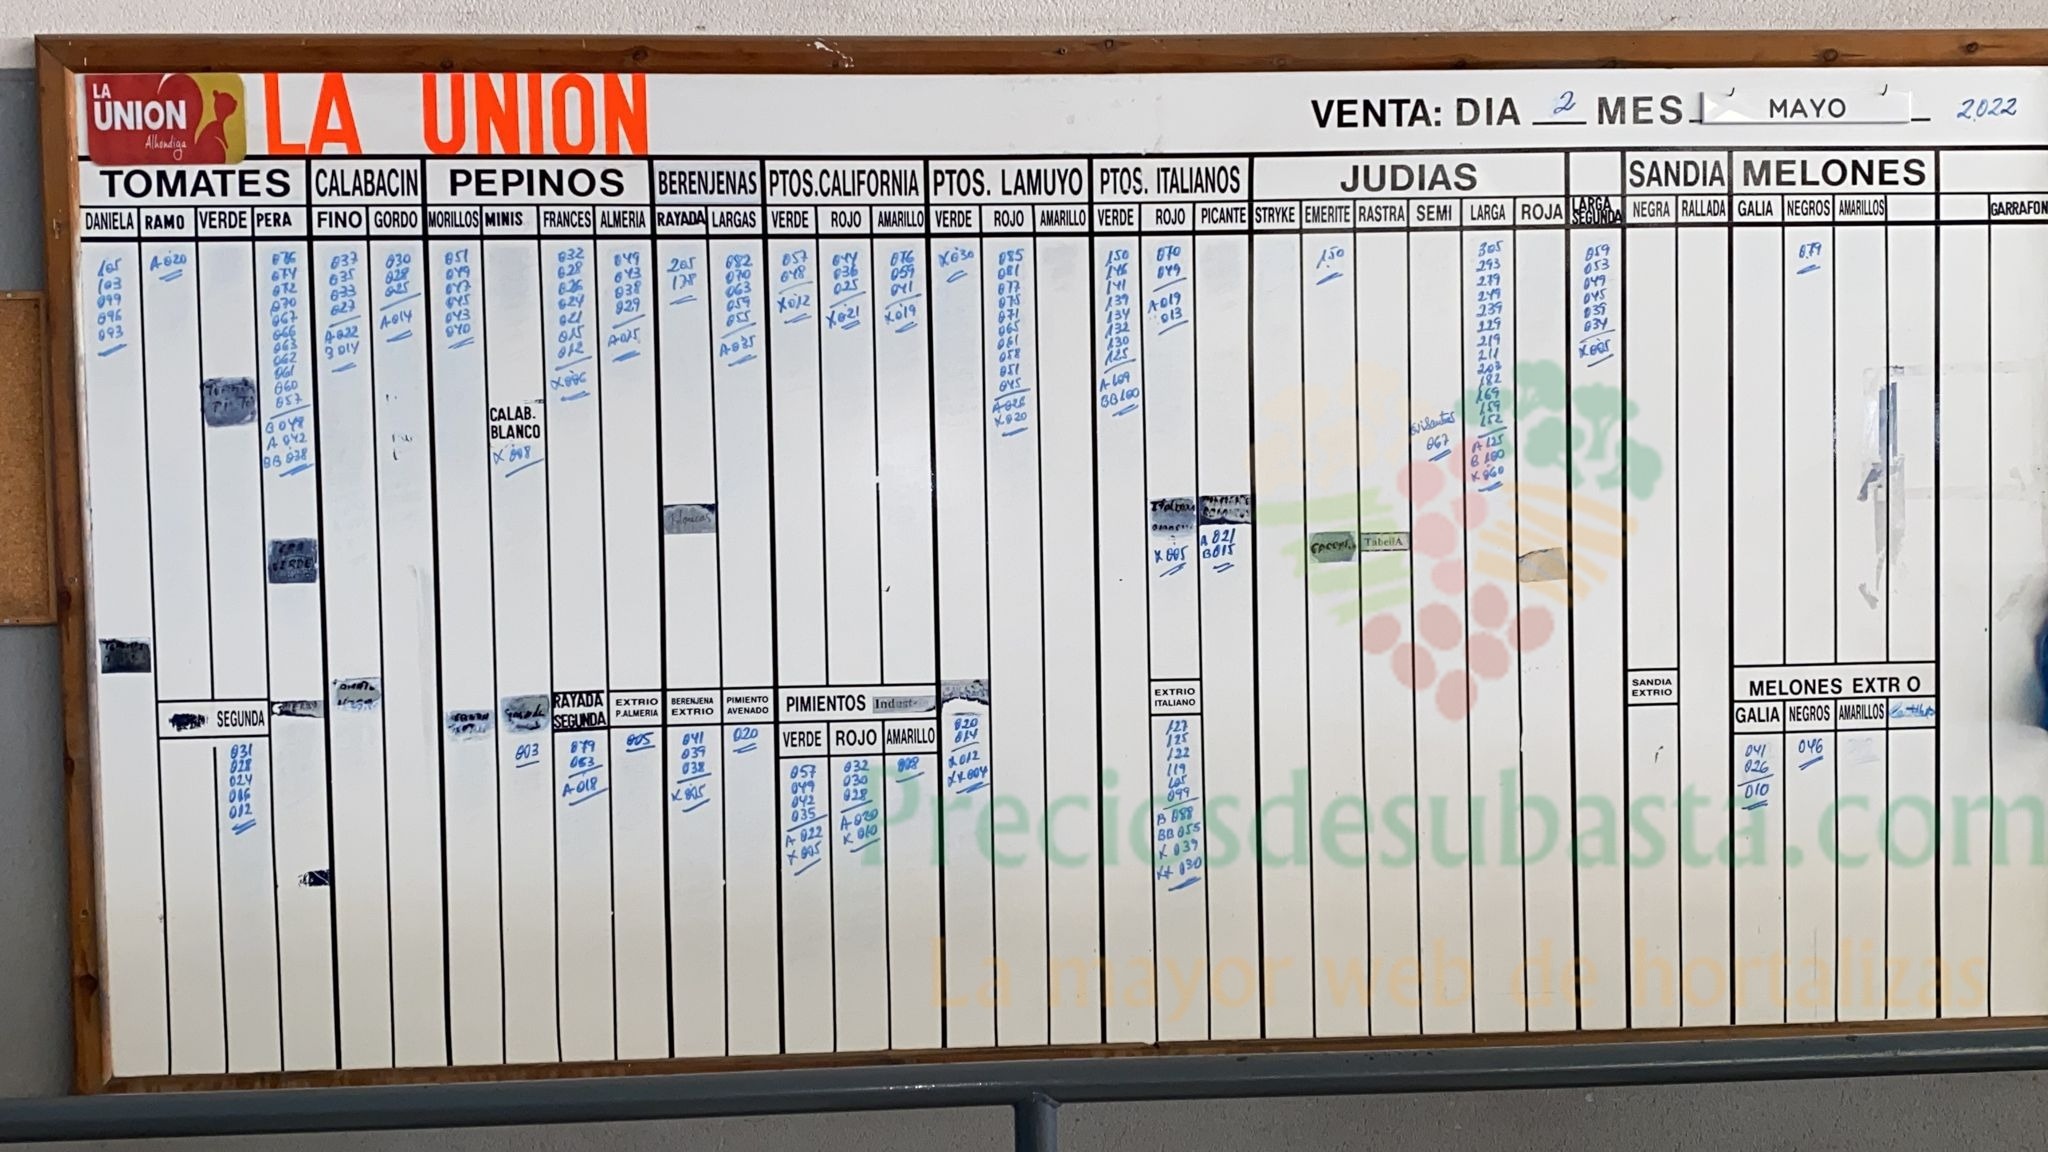 LA
UNION
Alhóndiga
LA UNION
VENTA: DIA 2 MES MAYO 2022
TOMATES CALABACIN PEPINOS BERENJENAS PTOS.CALIFORNIA PTOS. LAMUYO PTOS. ITALIANOS JUDIAS LARGA SEGUNDA SANDIA MELONES
DANIELA RAMO VERDE PERA FINO GORDO MORILLOS MINIS FRANCES ALMERIA RAYADA LARGAS VERDE ROJO AMARILLO VERDE ROJO AMARILLO VERDE ROJO PICANTE STRYKE EMERITE RASTRA SEMI LARGA ROJA NEGRA RALLADA GALIA NEGROS AMARILLOS GARRAFON
105
103
099
096
093
A 020
076
074
072
070
067
066
063
062
061
060
057
B 048
A 042
BB 038
037
035
033
027
A 022
B 014
030
028
025
A 014
051
049
047
045
043
040
CALAB.
BLANCO
X 008
032
028
026
024
021
015
012
X 006
049
043
038
029
A 025
205
178
082
070
063
059
055
A 035
057
048
X 012
044
036
025
X 021
076
059
041
X 019
X 030
085
081
077
075
071
065
061
058
051
045
A 026
X 020
150
146
141
139
134
132
130
125
A 109
BB 100
070
049
A 019
013
X 005
A 021
B 015
150
TabellA
067
305
293
279
249
239
229
219
211
203
182
169
159
152
A 125
B 100
X 060
059
053
049
045
039
034
X 005
079
SEGUNDA
031
028
024
016
012
003
RAYADA
SEGUNDA
079
063
A 018
EXTRIO
P.ALMERIA
005
BERENJENA
EXTRIO
041
039
038
X 005
PIMIENTO
AVENADO
020
PIMIENTOS Indust
VERDE ROJO AMARILLO
057
049
042
035
A 022
X 005
032
030
028
A 020
X 010
008
020
014
X 012
XX 004
EXTRIO
ITALIANO
127
125
122
119
105
099
B 088
BB 055
X 039
XX 030
SANDIA
EXTRIO
MELONES EXTRIO
GALIA NEGROS AMARILLOS
041
026
010
046
Preciosdesubasta.com
La mayor web de hortalizas